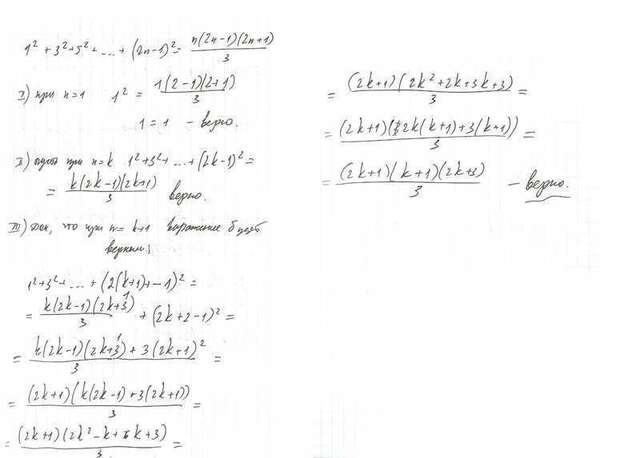 1² + 3² + 5² + ... + (2n-1)² = n(2n-1)(2n+1)/3
I) при n=1 1² = 1(2-1)(2+1)/3
1 = 1 - верно.
II) пусть при n=k 1²+3²+ ... + (2k-1)² =
= k(2k-1)(2k+1)/3 верно.
III) Док, что при n = k+1 выражение будет
верным:
1²+3²+ ... + (2(k+1)-1)² =
= k(2k-1)(2k+1)/3 + (2k+2-1)² =
= k(2k-1)(2k+1) + 3(2k+1)²/3 =
= (2k+1)(k(2k-1)+3(2k+1))/3 =
= (2k+1)(2k²-k+6k+3)/3 =
= (2k+1)(2k²+2k+3k+3)/3 =
= (2k+1)(2k(k+1)+3(k+1))/3 =
= (2k+1)(k+1)(2k+3)/3 - верно.